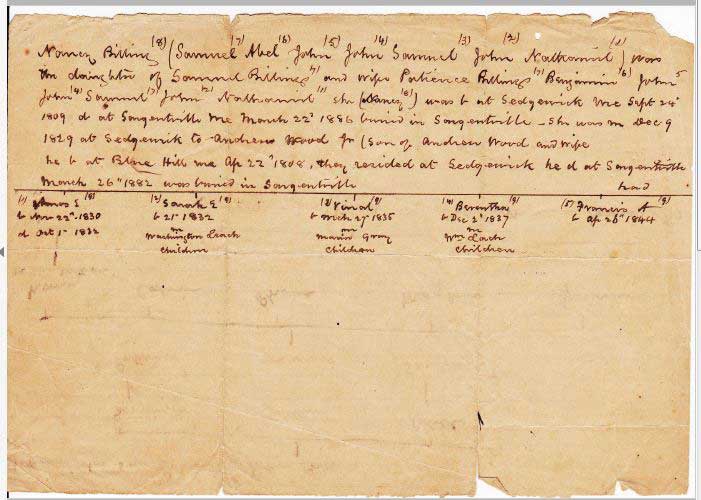 Nancy Billings (8) (Samuel (7) Abel (6) John (5) John (4) Samuel (3) John (2) Nathaniel (1)) was
the daughter of Samuel Billings (7) and wife Patience Billings (7) Benjamin (6) John 5
John (4) Samuel (3) John (2) Nathaniel (1) she (Nancy (8)) was b at Sedgewick Me Sept 24"
1809 d at Sargentville Me March 22d 1886 buried in Sargentville - She was m Dec 9
1829 at Sedgewick to Andrew Wood Jr (son of Andrew Wood and wife
he b at Blue Hill Me Ap 22d 1808, they resided at Sedgewick he d at Sargentville
March 26" 1882 was buried in Sargentville had
(1) E (9) (2) Sarah E (9) (3) Vinal (9) (4) (9) (5) Francis A (9)
b 22d 1830 b 21st 1832 b Mch 27" 1835 b Dec 2d 1837 b Ap 26" 1844
d Oct 1st 1832 m m m
Washington Leach Gray Wm Leach
children children children